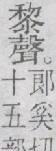 黎聲。
郎奚切
十五部